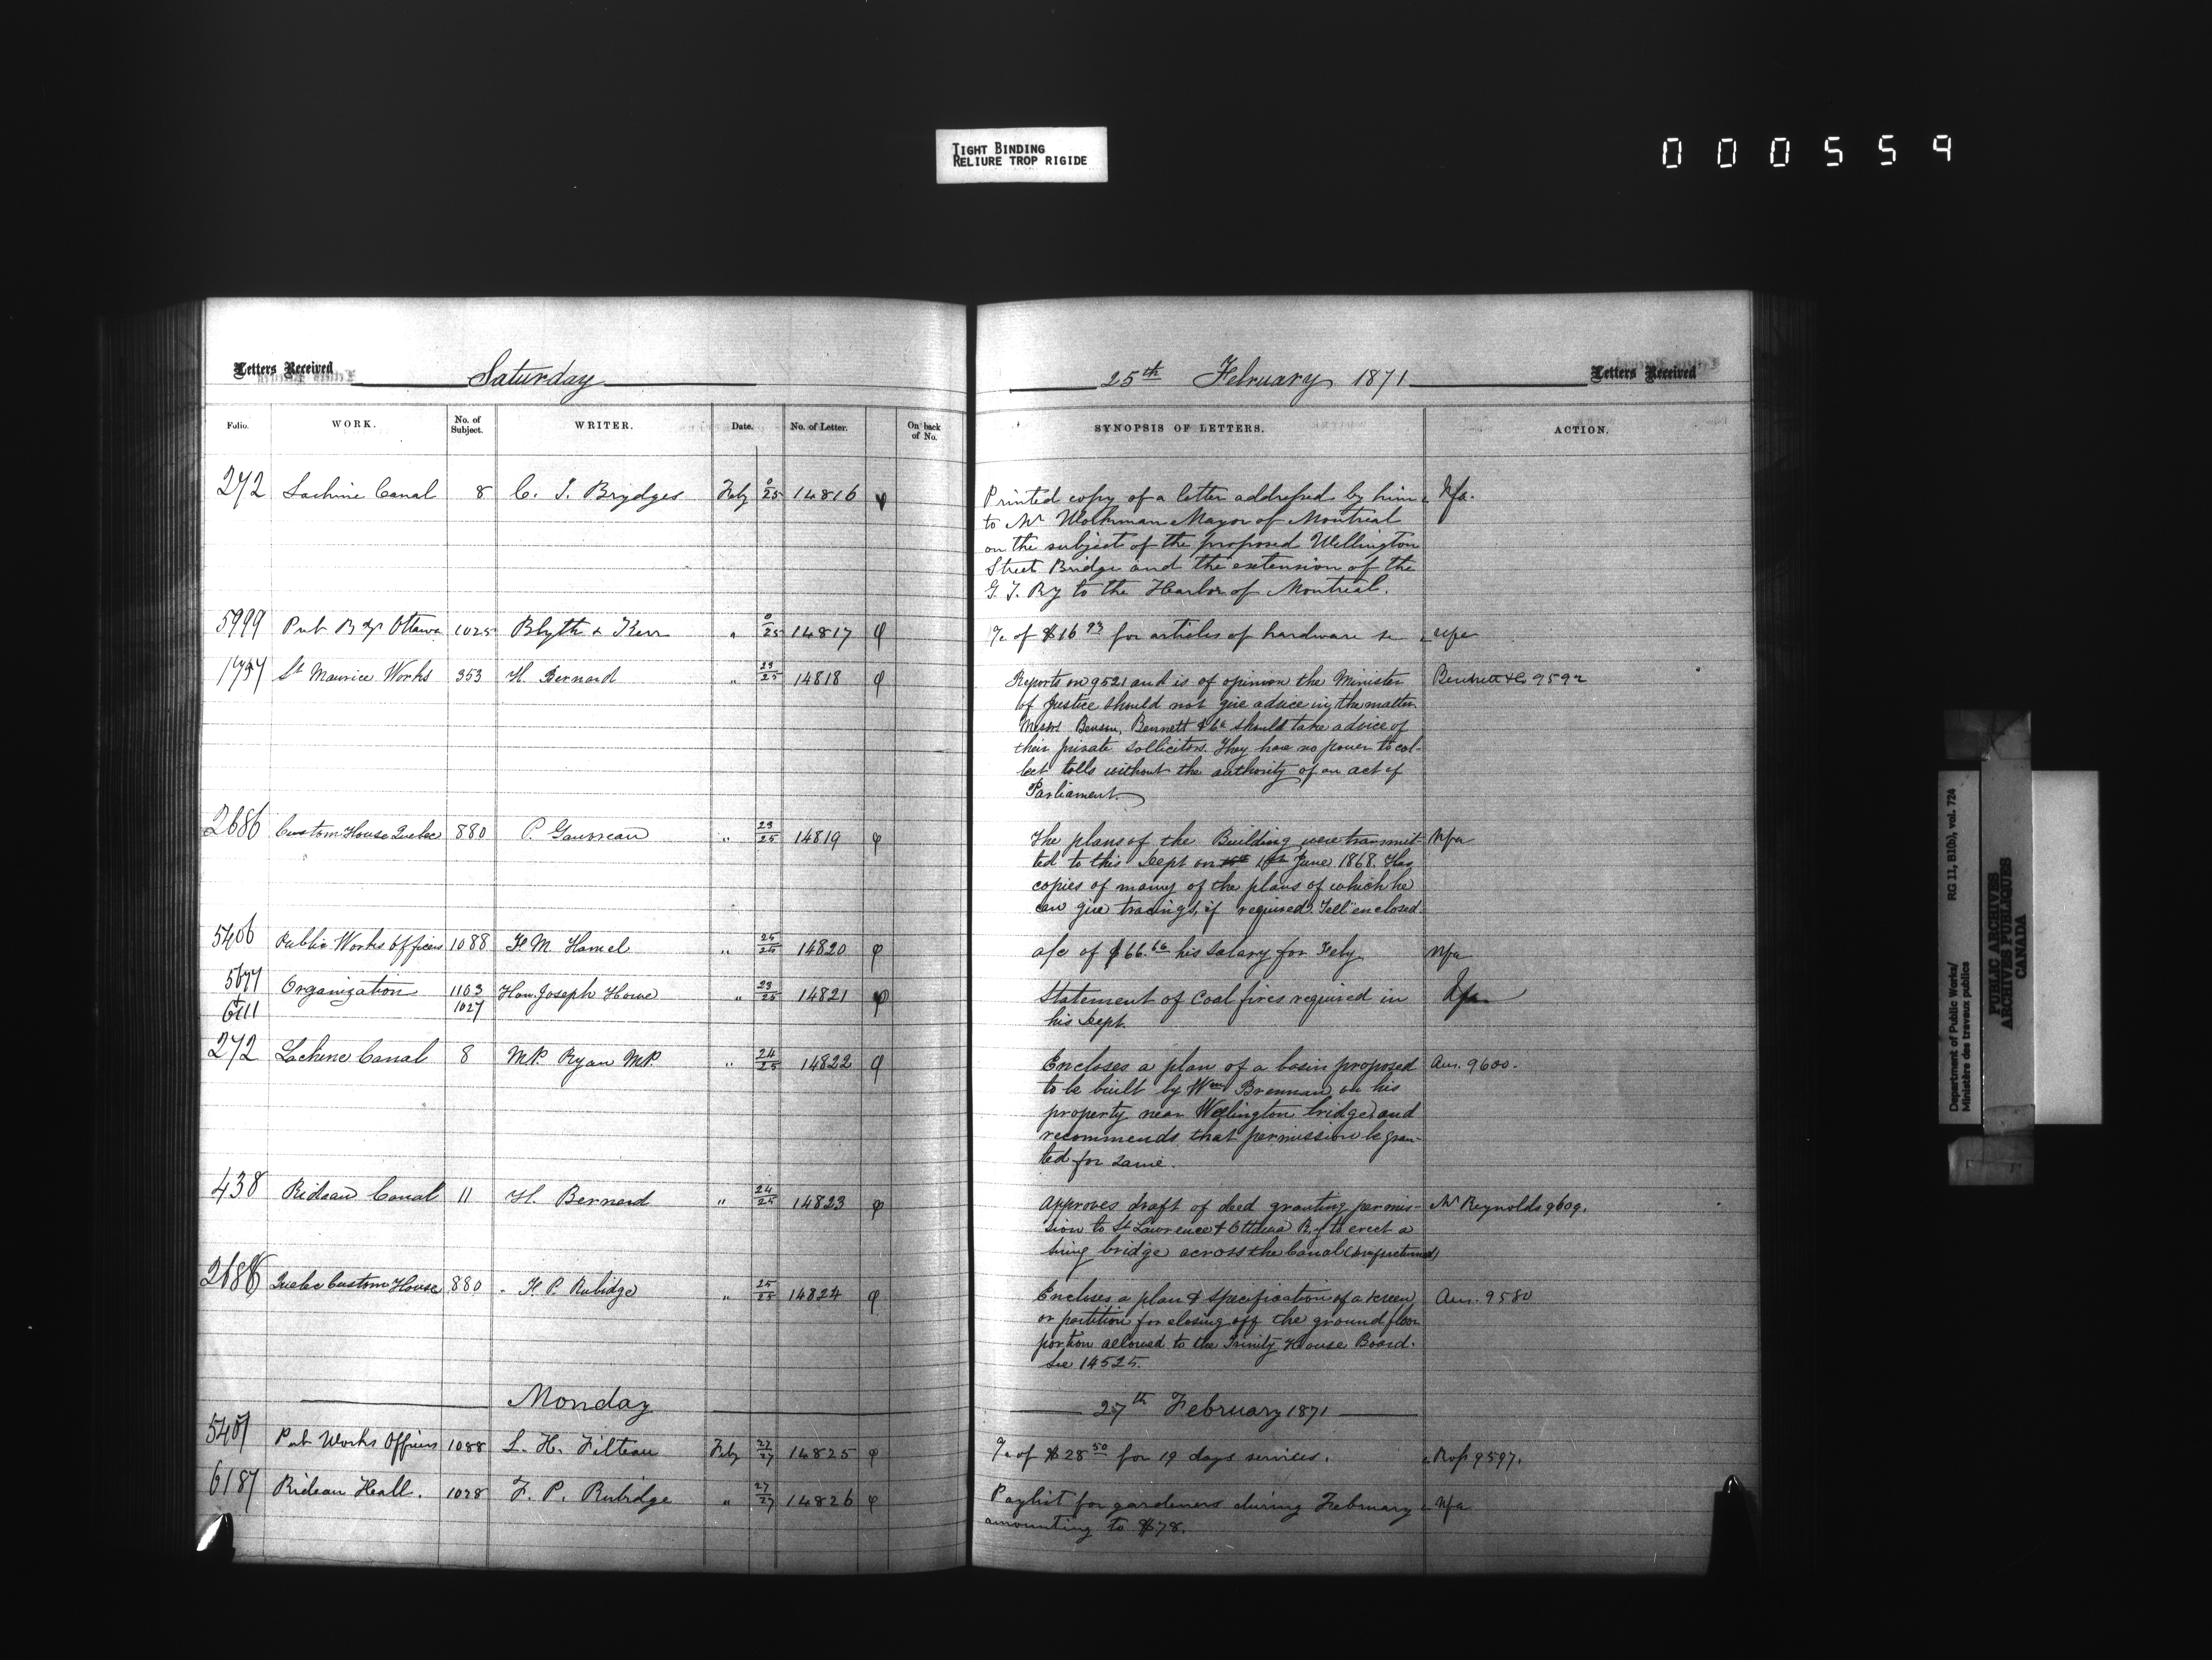 TIGHT BINDING
RELIURE TROP RIGIDE
000559
Letters Received Saturday 25th February 1871 Letters Received
Folio. WORK. No. of Subject. WRITER. Date. No. of Letter. On back of No. SYNOPSIS OF LETTERS. ACTION.
272 Lachine Canal 8 C. J. Brydges Feby 0/25 14816 Printed copy of a letter addressed by him Nfa.
to Mr Workman Mayor of Montreal
on the subject of the proposed Wellington
Street Bridge and the extension of the
G. T. Ry to the Harbor of Montreal.
5999 Pub Bdgs Ottawa 1025 Blyth & Kerr " 0/25 14817 a/c of $16 93 for articles of hardware
1757 St Maurice Works 353 H. Bernard " 23/25 14818 Reports on 9521 and is of opinion the Minister 9592
of Justice should not give advice in the matter
Messrs Benson, Bennett & Co should take advice of
their private sollicitors. They have no power to col-
lect tolls without the authority of an act of
Parliament.
2686 Custom House Quebec 880 P. Gauvreau " 23/25 14819 The plans of the Building were transmit- Nfa
ted to this Dept on June 1868. Has
copies of many of the plans of which he
can give tracings, if required. enclosed.
5406 Public Works Officers 1088 H. M. Hamel " 25/25 14820 a/c of $66.66 his salary for Feby Nfa
5677 & 6111 Organization 1103 1027 Hon. Joseph Howe " 23/25 14821 Statement of Coal fires required in Nfa
his Dept.
272 Lachine Canal 8 M.P. Ryan M.P. " 24/25 14822 Encloses a plan of a basin proposed Ans. 9600.
to be built by Wm Brennan on his
property near Wellington bridge and
recommends that permission be gran-
ted for same.
438 Rideau Canal 11 H. Bernard " 24/25 14823 Approves draft of deed granting permis- Mr Reynolds 9609.
sion to St Lawrence & Ottawa Ry to erect a
swing bridge across the Canal
2686 Quebec Custom House 880 F. P. Rubidge " 25/25 14824 Encloses a plan & specification of a screen Ans. 9580
or partition for closing off the ground floor
portion allowed to the Trinity House Board.
See 14525.
Monday 27th February 1871
5407 Pub Works Officers 1088 L. H. Filteau Feby 27/27 14825 a/c of $28 50 for 19 days services. 9597.
6187 Rideau Hall. 1028 F. P. Rubidge " 27/27 14826 Paylist for gardeners during February Nfa
amounting to $78.
Department of Public Works/ RG 11, B1(b), vol. 724
Ministère des travaux publics
PUBLIC ARCHIVES
ARCHIVES PUBLIQUES
CANADA